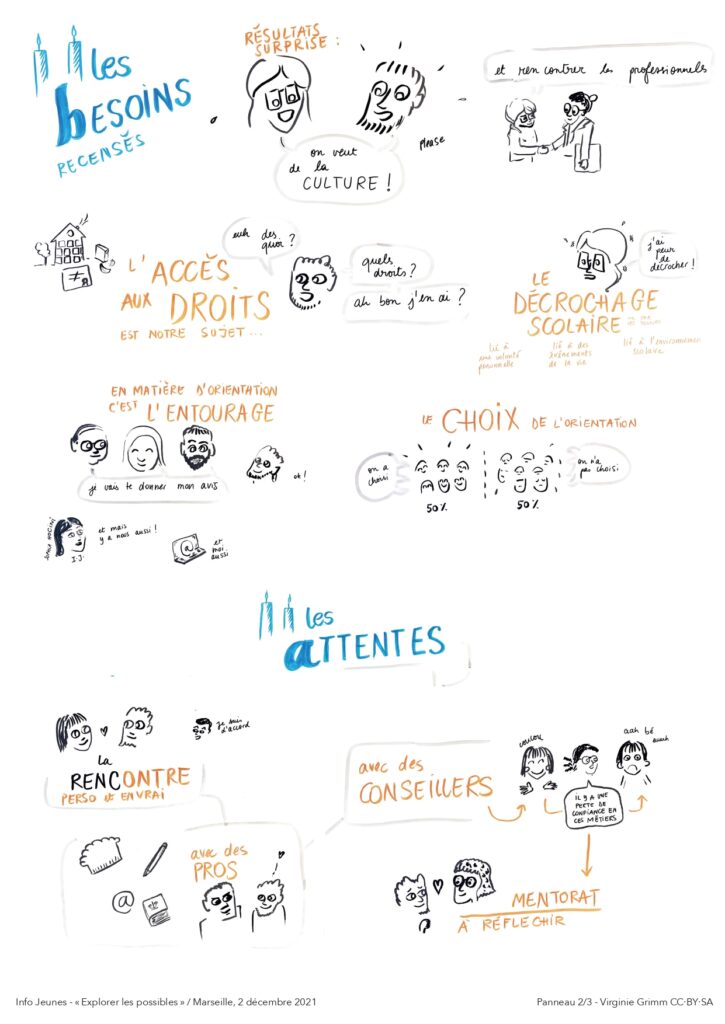 les
BESOINS
RECENSÉS
RÉSULTATS
SURPRISE :
on veut
de la
CULTURE !
please
et rencontrer les professionnels
L'ACCÈS
AUX DROITS
EST NOTRE SUJET...
euh des
quoi ?
quels
droits ?
ah bon j'en ai ?
j'ai
peur
de
décrocher !
LE
DÉCROCHAGE
SCOLAIRE
lié à
une volonté
personnelle
lié à des
événements
de la vie
lié à l'environnement
scolaire
EN MATIÈRE D'ORIENTATION
C'EST L'ENTOURAGE
je vais te donner mon avis
et mais
y a nous aussi !
I.J.
@
et
moi
aussi
LE CHOIX DE L'ORIENTATION
on a
choisi
50%
50%
on n'a
pas choisi
les
ATTENTES
je suis
d'accord
la
RENCONTRE
PERSO ET EN VRAI
avec des
PROS
@
avec des
CONSEILLERS
coucou
aah bé
IL Y A UNE
PERTE DE
CONFIANCE EN
CES MÉTIERS
MENTORAT
À RÉFLECHIR
Info Jeunes - « Explorer les possibles » / Marseille, 2 décembre 2021
Panneau 2/3 - Virginie Grimm CC·BY·SA